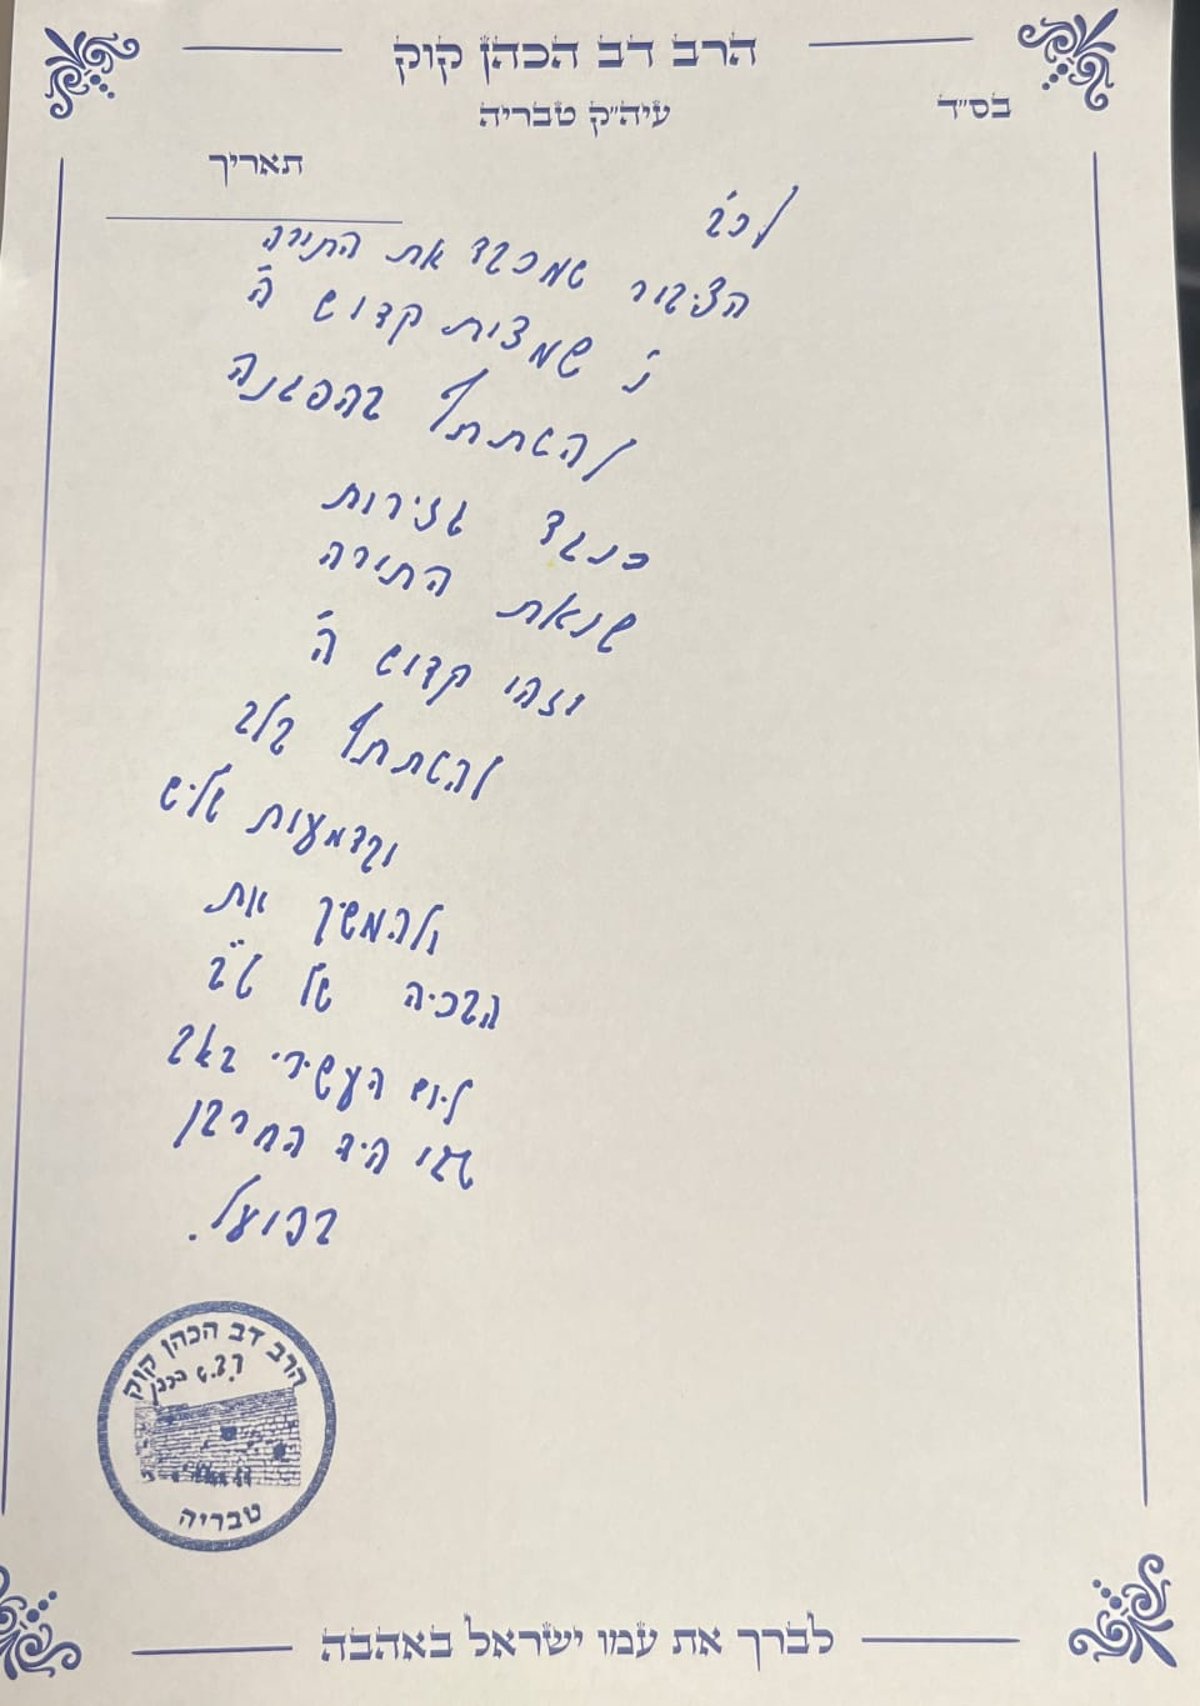 הרב דב הכהן קוק
עיה"ק טבריה
בס"ד
תאריך
לכ'
הציבור שמכבד את התורה
נ' שמצוות קדוש ה'
להשתתף בהפגנה
כנגד גזירות
שנאת התורה
וזהו קדוש ה'
להשתתף בלב
ובדמעות שליש
ולהמשיך את
הבכיה של ט"ב
ליום העשירי באב
שבו היה החרבן
בפועל.
הרב דב הכהן קוק
טבריה
לברך את עמו ישראל באהבה